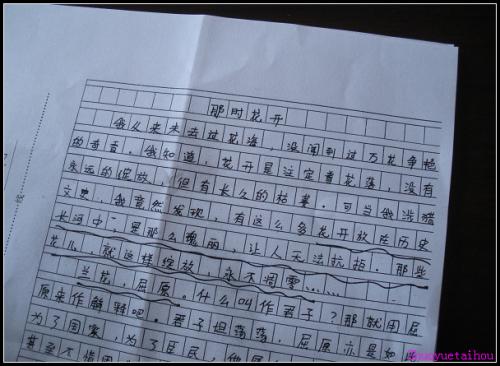 那时花开
我从来未去过花海，没闻到过万花争艳
的奇香。我知道，花开是注定着花落，没有
永远的绽放，但有长久的枯萎。可当我涉猎
文史，我竟然发现，有这么多花开放在历史
长河中，是那么瑰丽，让人无法抗拒。那些
花儿，就这样绽放，永不凋零……
兰花，屈原。什么叫作君子？那就用屈
原来作解释吧。君子坦荡荡，屈原亦是如
为了国家，为了臣民，他
甚至不惜